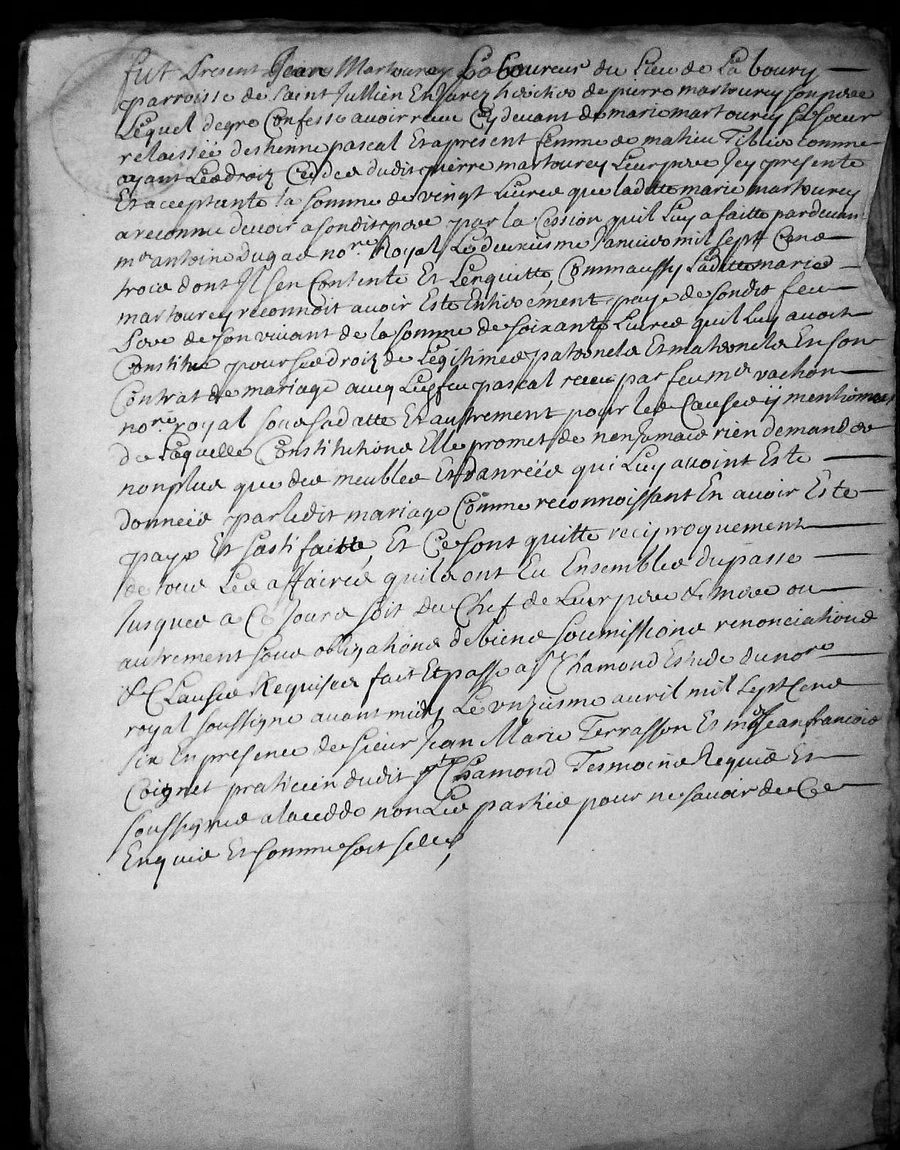 fut Present Jean Martourey Laboureur du Lieu de La boury
parroisse de Saint Jullien En Jarez heritier de pierre martourey son pere
Lequel de gre Confesse avoir receu Cy devant de marie martourey sa soeur
relaissée destienne pascal Et apresent femme de mahieu Tiblier comme
ayant Les droiz Cedes dudit pierre martourey Leur pere Jcy presente
Et acceptante la somme de vingt Livres que laditte marie martourey
a reconnu devoir a sondit pere par la Cession quil Luy a faitte pardevant
mre antoine dugas nore Royal Le deuxiesme Janvier mil sept Cens
trois dont Jl sen Contente Et Len quitte, Comm aussy Laditte marie
martourey reconnoit avoir Este Entierement paye de sondit feu
Pere de son vivant de la somme de soixante Livres quil Luy avoit
Constitué pour ses droiz de Legitimes paternels Et maternels En son
Contrat de mariage avec Ledit feu pascal receu par feu mre vachon
nore royal sous sa datte Et autrement pour les Causes y mentionnees
de Laquelle Constitution Elle promet de nen Jamais rien demander
non plus que des meubles Et danrées qui Luy avoint Este
donnees par ledit mariage Comme reconnoissant En avoir Este
payé Et sastifaitte, Et Ce sont quitte reciproquement
de tous Les affaires quils ont Eu Ensembles du passe
Jusques a Ce Jours soit du Chef de Leur pere & mere ou
autrement sous obligations de biens soumissions renonciations
& Clauses Requises fait Et passe a st Chamond Estude du nore
royal soussigne avant midy Le unziesme avril mil sept Cens
six En presence de sieur Jean Marie Terrasson Et me Jean francois
Coignet praticien dudit st Chamond Tesmoins Requis Et
soussignes a la cedde non Les parties pour ne savoir de Ce
Enquis Et somme soit selle,